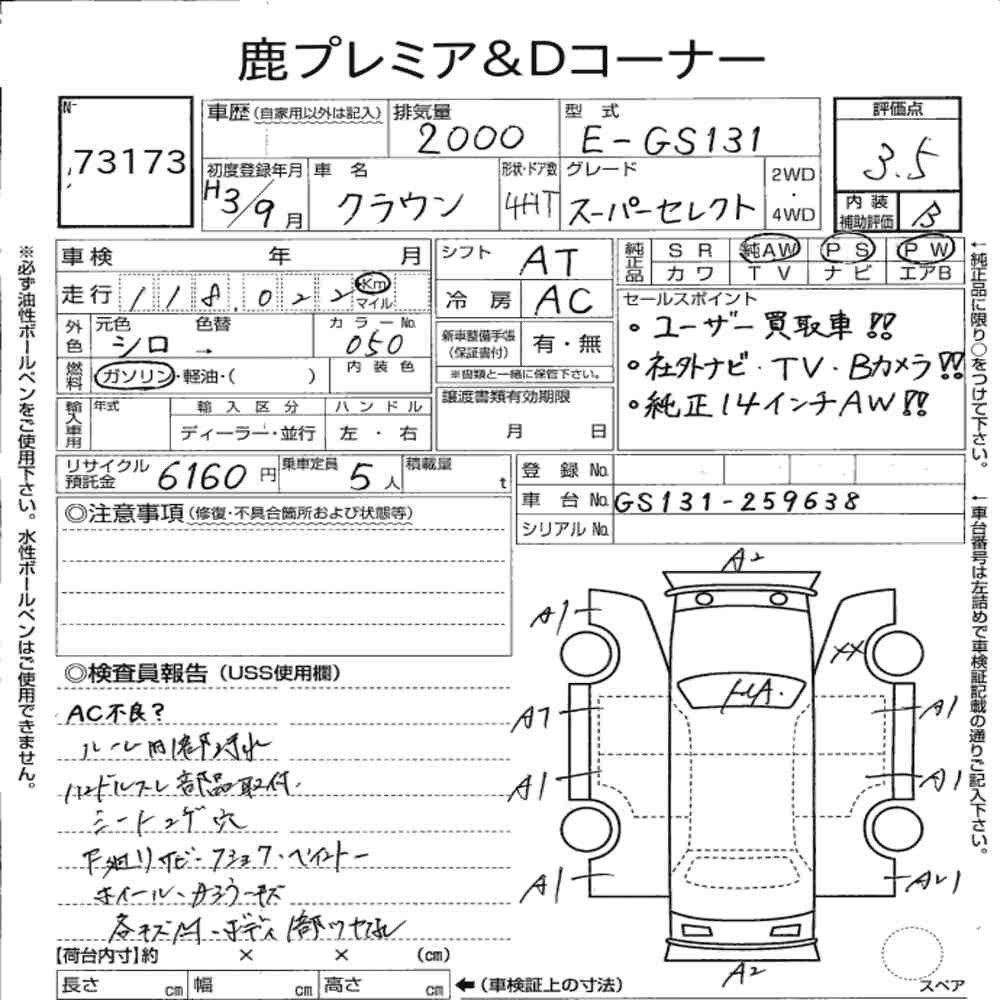 鹿プレミア&Dコーナー
73173
車歴(自家用以外は記入)
排気量
2000
型 式
E-GS131
評価点
3.5
初度登録年月
H3/9月
車 名
クラウン
形状・ドア数
4HT
グレード
スーパーセレクト
2WD
・
4WD
内 装
補助評価
B
※必ず油性ボールペンをご使用下さい。水性ボールペンはご使用できません。
車検 年 月
走行 118,022 Km
マイル
外色
元色 シロ → 色替
カラーNo.
050
燃料
ガソリン・軽油・( )
内 装 色
輸入車用
年式
輸 入 区 分
ディーラー・並行
ハ ン ド ル
左 ・ 右
シフト AT
冷 房 AC
新車整備手帳
(保証書付)
有・無
※書類と一緒に保管下さい。
譲渡書類有効期限
月 日
純正品
SR 純AW PS PW
カワ TV ナビ エアB
セールスポイント
・ユーザー買取車!!
・社外ナビ・TV・Bカメラ!!
・純正14インチAW!!
←純正品に限り○をつけて下さい。
←車台番号は左詰めで車検証記載の通りご記入下さい。
リサイクル
預託金
6160円
乗車定員 5人
積載量 t
登 録 No.
車 台 No. GS131-259638
シリアルNo.
◎注意事項(修復・不具合箇所および状態等)
◎検査員報告(USS使用欄)
AC不良?
部品取付
各キズ
A2
A1
XX
A1
A1
A1
A1
A2
スペア
【荷台内寸】約 × × (cm)
長さ cm 幅 cm 高さ cm
←(車検証上の寸法)